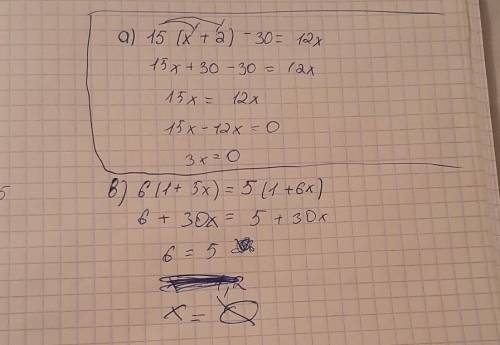 а) 15 (x + 2) - 30 = 12x
15x + 30 - 30 = 12x
15x = 12x
15x - 12x = 0
3x = 0
в) 6 (1 + 5x) = 5 (1 + 6x)
6 + 30x = 5 + 30x
6 = 5
x = ∅